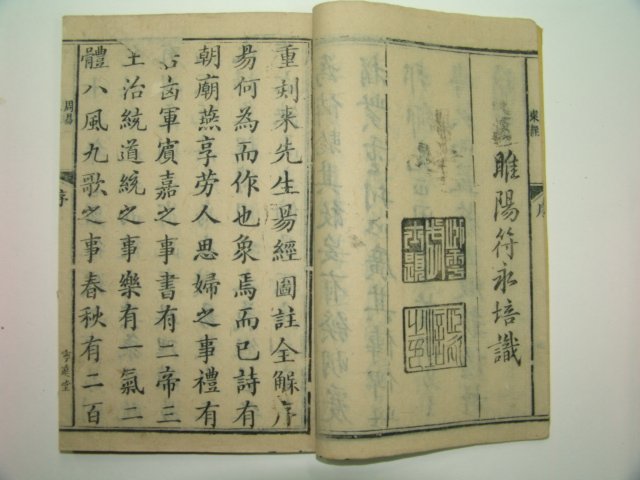 睢陽符永培識
重刻来先生易經圖註全觧序
易何為而作也象焉而已詩有
朝廟燕享劳人思婦之事禮有
吉凶軍賓嘉之事書有二帝三
王治統道統之事樂有一氣二
體八風九歌之事春秋有二百
周易
序